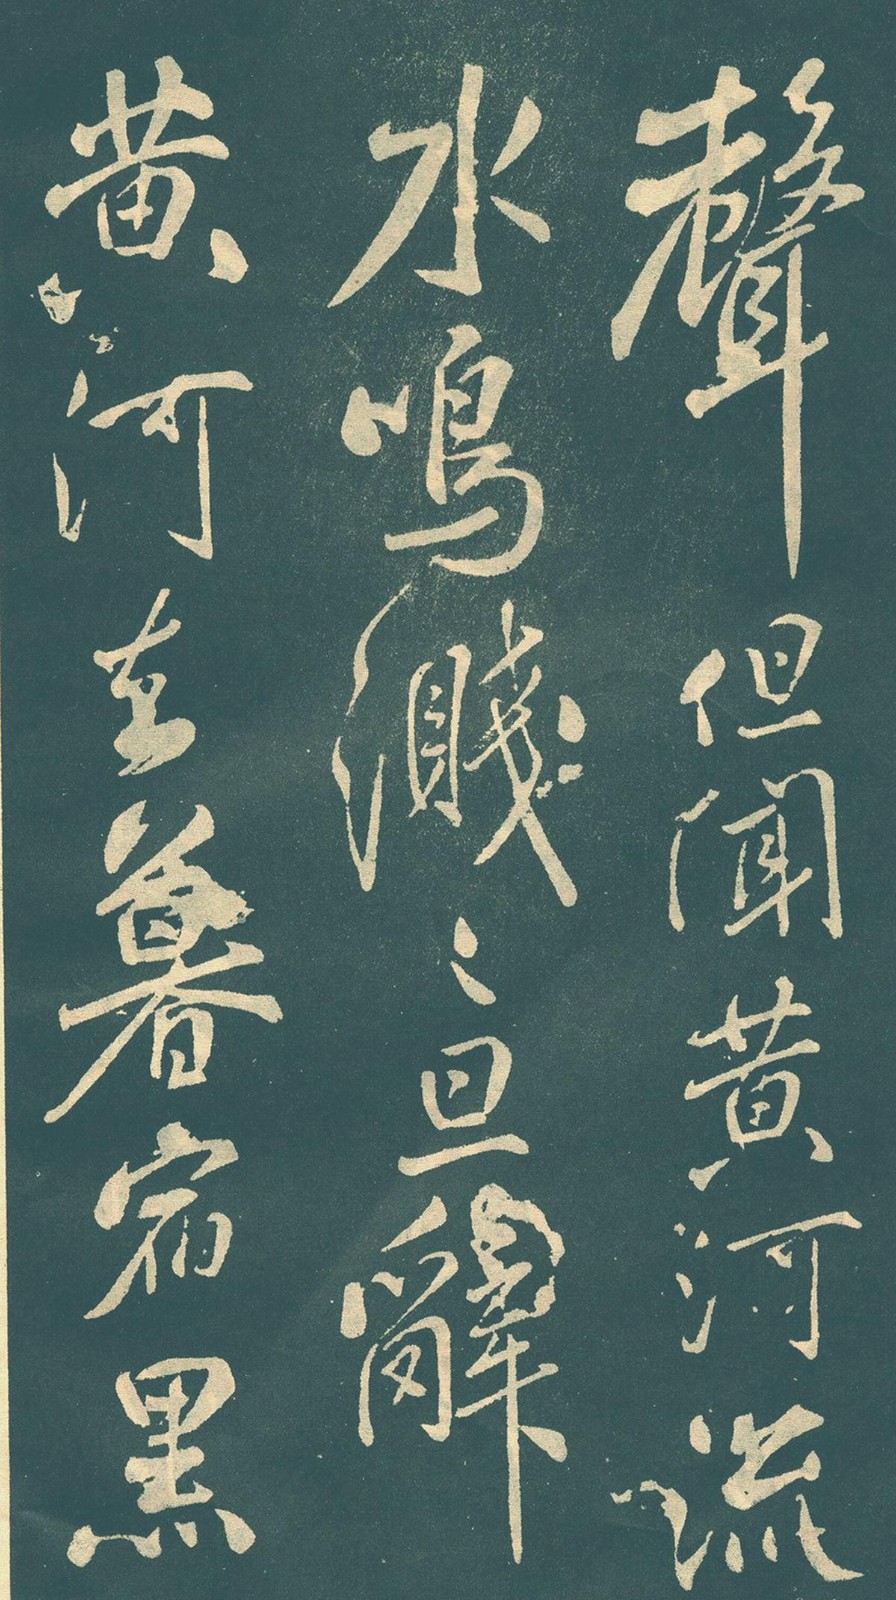 聲但聞黃河流
水鳴濺〻旦辭
黃河至暮宿黑